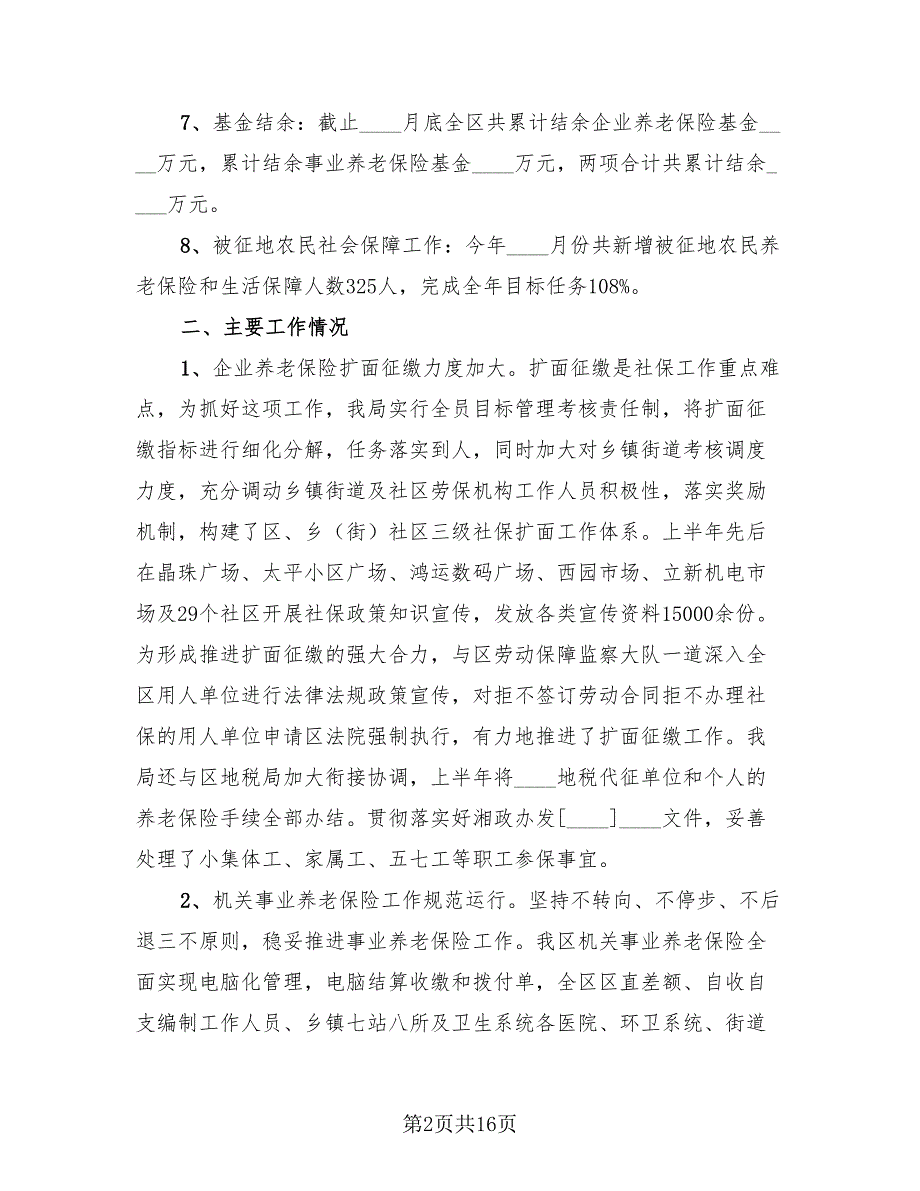 7、基金结余：截止____月底全区共累计结余企业养老保险基金__
__万元，累计结余事业养老保险基金____万元，两项合计共累计结余_
___万元。
8、被征地农民社会保障工作：今年____月份共新增被征地农民养
老保险和生活保障人数325人，完成全年目标任务108%。
二、主要工作情况
1、企业养老保险扩面征缴力度加大。扩面征缴是社保工作重点难
点，为抓好这项工作，我局实行全员目标管理考核责任制，将扩面征
缴指标进行细化分解，任务落实到人，同时加大对乡镇街道考核调度
力度，充分调动乡镇街道及社区劳保机构工作人员积极性，落实奖励
机制，构建了区、乡（街）社区三级社保扩面工作体系。上半年先后
在晶珠广场、太平小区广场、鸿运数码广场、西园市场、立新机电市
场及29个社区开展社保政策知识宣传，发放各类宣传资料15000余份。
为形成推进扩面征缴的强大合力，与区劳动保障监察大队一道深入全
区用人单位进行法律法规政策宣传，对拒不签订劳动合同拒不办理社
保的用人单位申请区法院强制执行，有力地推进了扩面征缴工作。我
局还与区地税局加大衔接协调，上半年将____地税代征单位和个人的
养老保险手续全部办结。贯彻落实好湘政办发[____]____文件，妥善
处理了小集体工、家属工、五七工等职工参保事宜。
2、机关事业养老保险工作规范运行。坚持不转向、不停步、不后
退三不原则，稳妥推进事业养老保险工作。我区机关事业养老保险全
面实现电脑化管理，电脑结算收缴和拨付单，全区区直差额、自收自
支编制工作人员、乡镇七站八所及卫生系统各医院、环卫系统、街道
第2页共16页